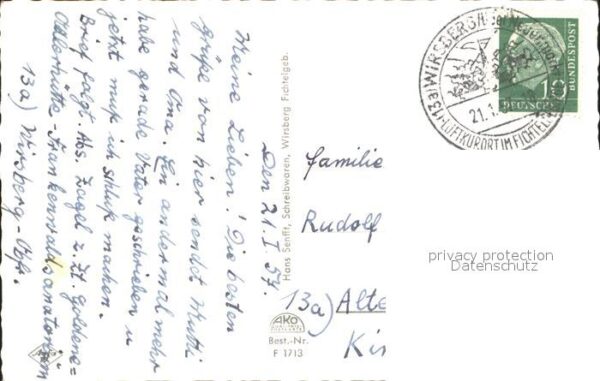 Den 21. I. 57.
Meine Lieben! Die besten
Grüße von hier sendet Mutti
und Oma. Ein andermal mehr
habe gerade Vater geschrieben u
jetzt muß ich schluß machen.
Brief folgt. Abs. Zagel z. Zt. Goldene-
Adlerhütte - Frankenwaldsanatorium
13a) Wirsberg - Ofr.
Hans Senfft, Schreibwaren, Wirsberg Fichtelgeb.
AKO
Best.-Nr.
F 1713
(13a) WIRSBERG
LUFTKURORT IM FICHTEL
21.1.
10
DEUTSCHE
BUNDESPOST
Familie
Rudolf
13a) Alte
Ki
privacy protection
Datenschutz